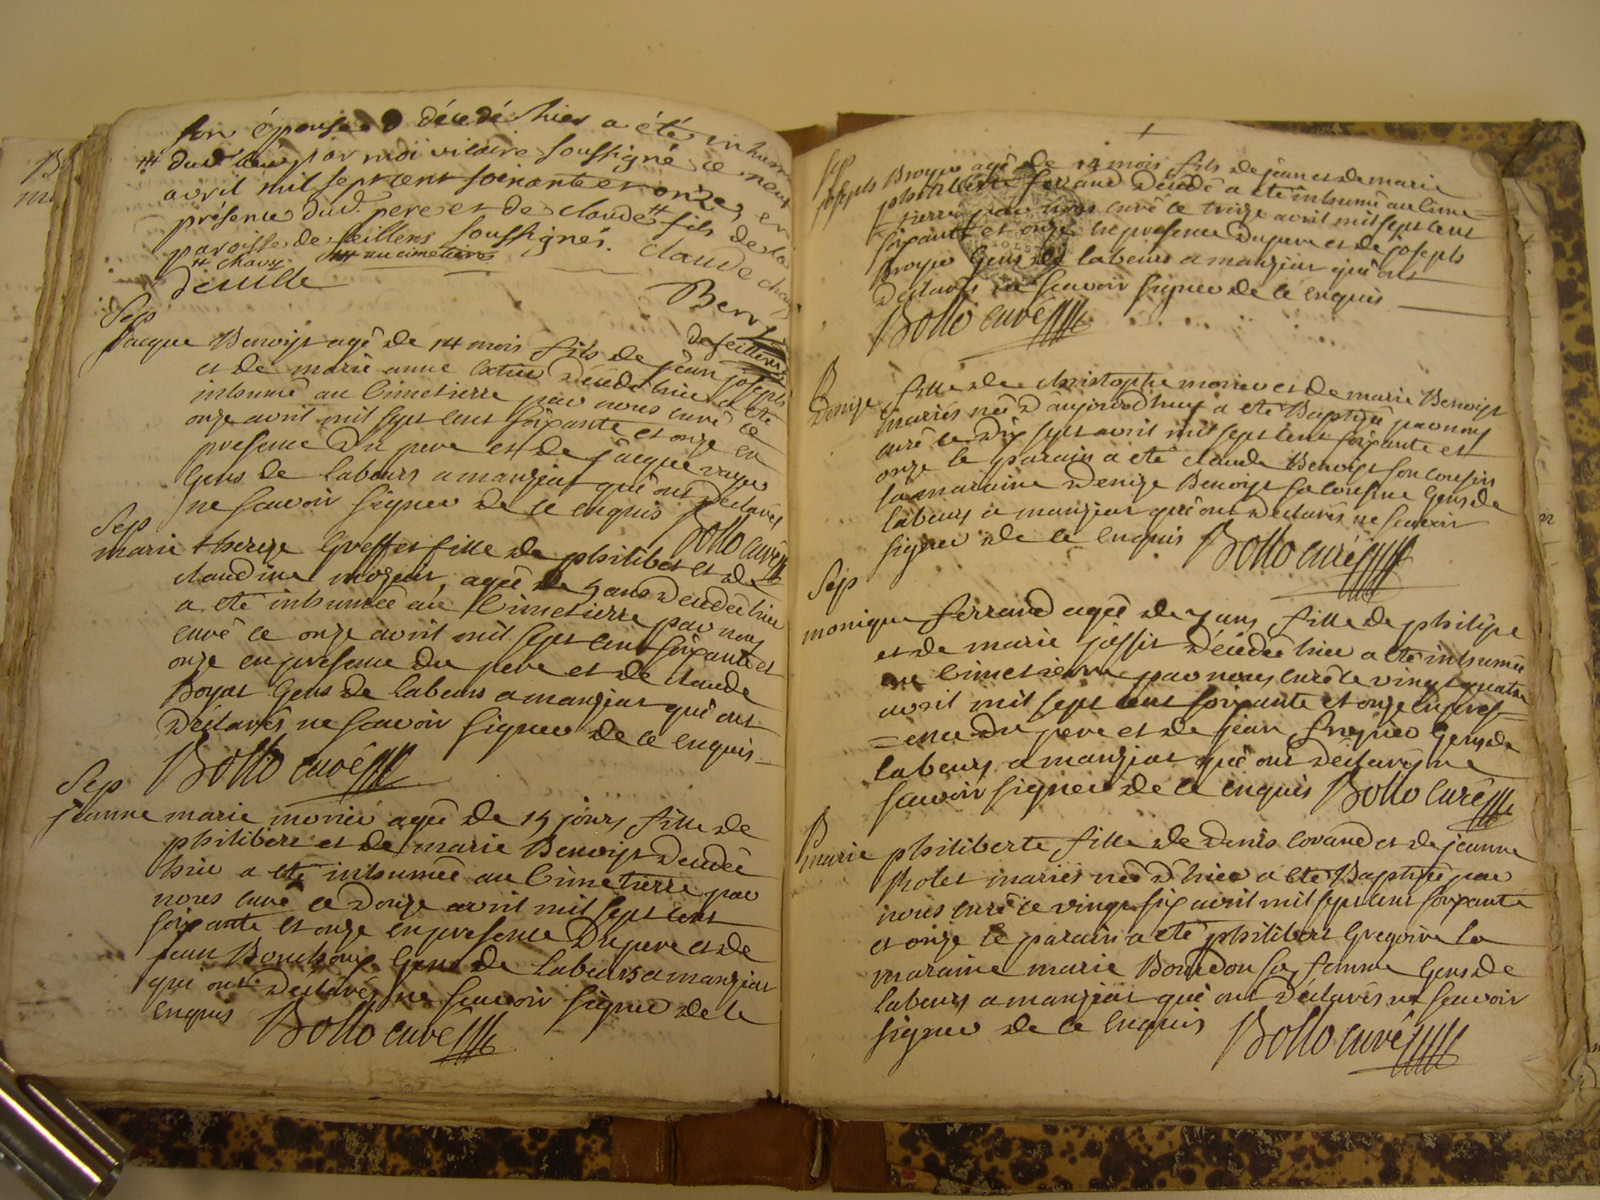 son épouse décédé hier a été inhumé
dud. lieu par moi vicaire soussigné ce neuf
avril mil sept cent soixante et onze, en
présence dud. pere et de claude fils de la
paroisse de seillens soussignés. Claude chavy
chavy au cimetiere
Berry
de seillens
Sep
Jacque Benoist agé de 14 mois fils de jean joseph
et de marie anne décédé hier a eté
inhumé au Cimetierre par nous curé ce
onze avril mil sept cent soixante et onze en
presence du pere et de jacque
gens de labeurs a manziat qui ont declarés
ne scavoir signer de ce enquis Bollo curé
Sep
marie thereze Greffet fille de philibert et de
claudine agée de 5 ans décédée hier
a eté inhumée au Cimetierre par nous
curé ce onze avril mil sept cent soixante et
onze en presence du pere et de claude
Boyat gens de labeurs a manziat qui ont
déclarés ne scavoir signer de ce enquis
Bollo curé
Sep
jeanne marie morier agée de 15 jours fille de
philibert et de marie Benoist décédée
hier a eté inhumée au Cimetierre par
nous curé ce douze avril mil sept cent
soixante et onze en presence du pere et de
jean gens de labeurs a manziat
qui ont déclarés ne scavoir signer de ce
enquis Bollo curé
Sep
joseph Broyer agé de 14 mois fils de jean et de marie
philiberte ferrand décédé a eté inhumé au cime=
=tierre par nous curé ce treize avril mil sept cent
soixante et onze en presence du pere et de joseph
Broyer gens de labeurs a manziat qui ont
declarés ne scavoir signer de ce enquis
Bollo curé
B
Denize fille de christophe morier et de marie Benoist
mariés née d'aujourd'huy a eté Baptisée par nous
curé ce dix sept avril mil sept cent soixante et
onze le parain a eté claude Benoist son cousin
la maraine Denize Benoist sa cousine gens de
labeurs a manziat qui ont déclarés ne scavoir
signer de ce enquis Bollo curé
Sep
monique ferrand agée de 7 ans fille de philipe
et de marie jossit décédée hier a eté inhumée
au Cimetierre par nous curé ce vingt quatre
avril mil sept cent soixante et onze en pres=
=ence du pere et de jean gens de
labeurs a manziat qui ont déclarés ne
scavoir signer de ce enquis Bollo curé
B
marie philiberte fille de denis Corand et de jeanne
Rolet mariés née d'hier a eté Baptisée par
nous curé ce vingt six avril mil sept cent soixante
et onze le parain a eté philibert Gregoire la
maraine marie Bourdon sa femme gens de
labeurs a manziat qui ont déclarés ne scavoir
signer de ce enquis Bollo curé